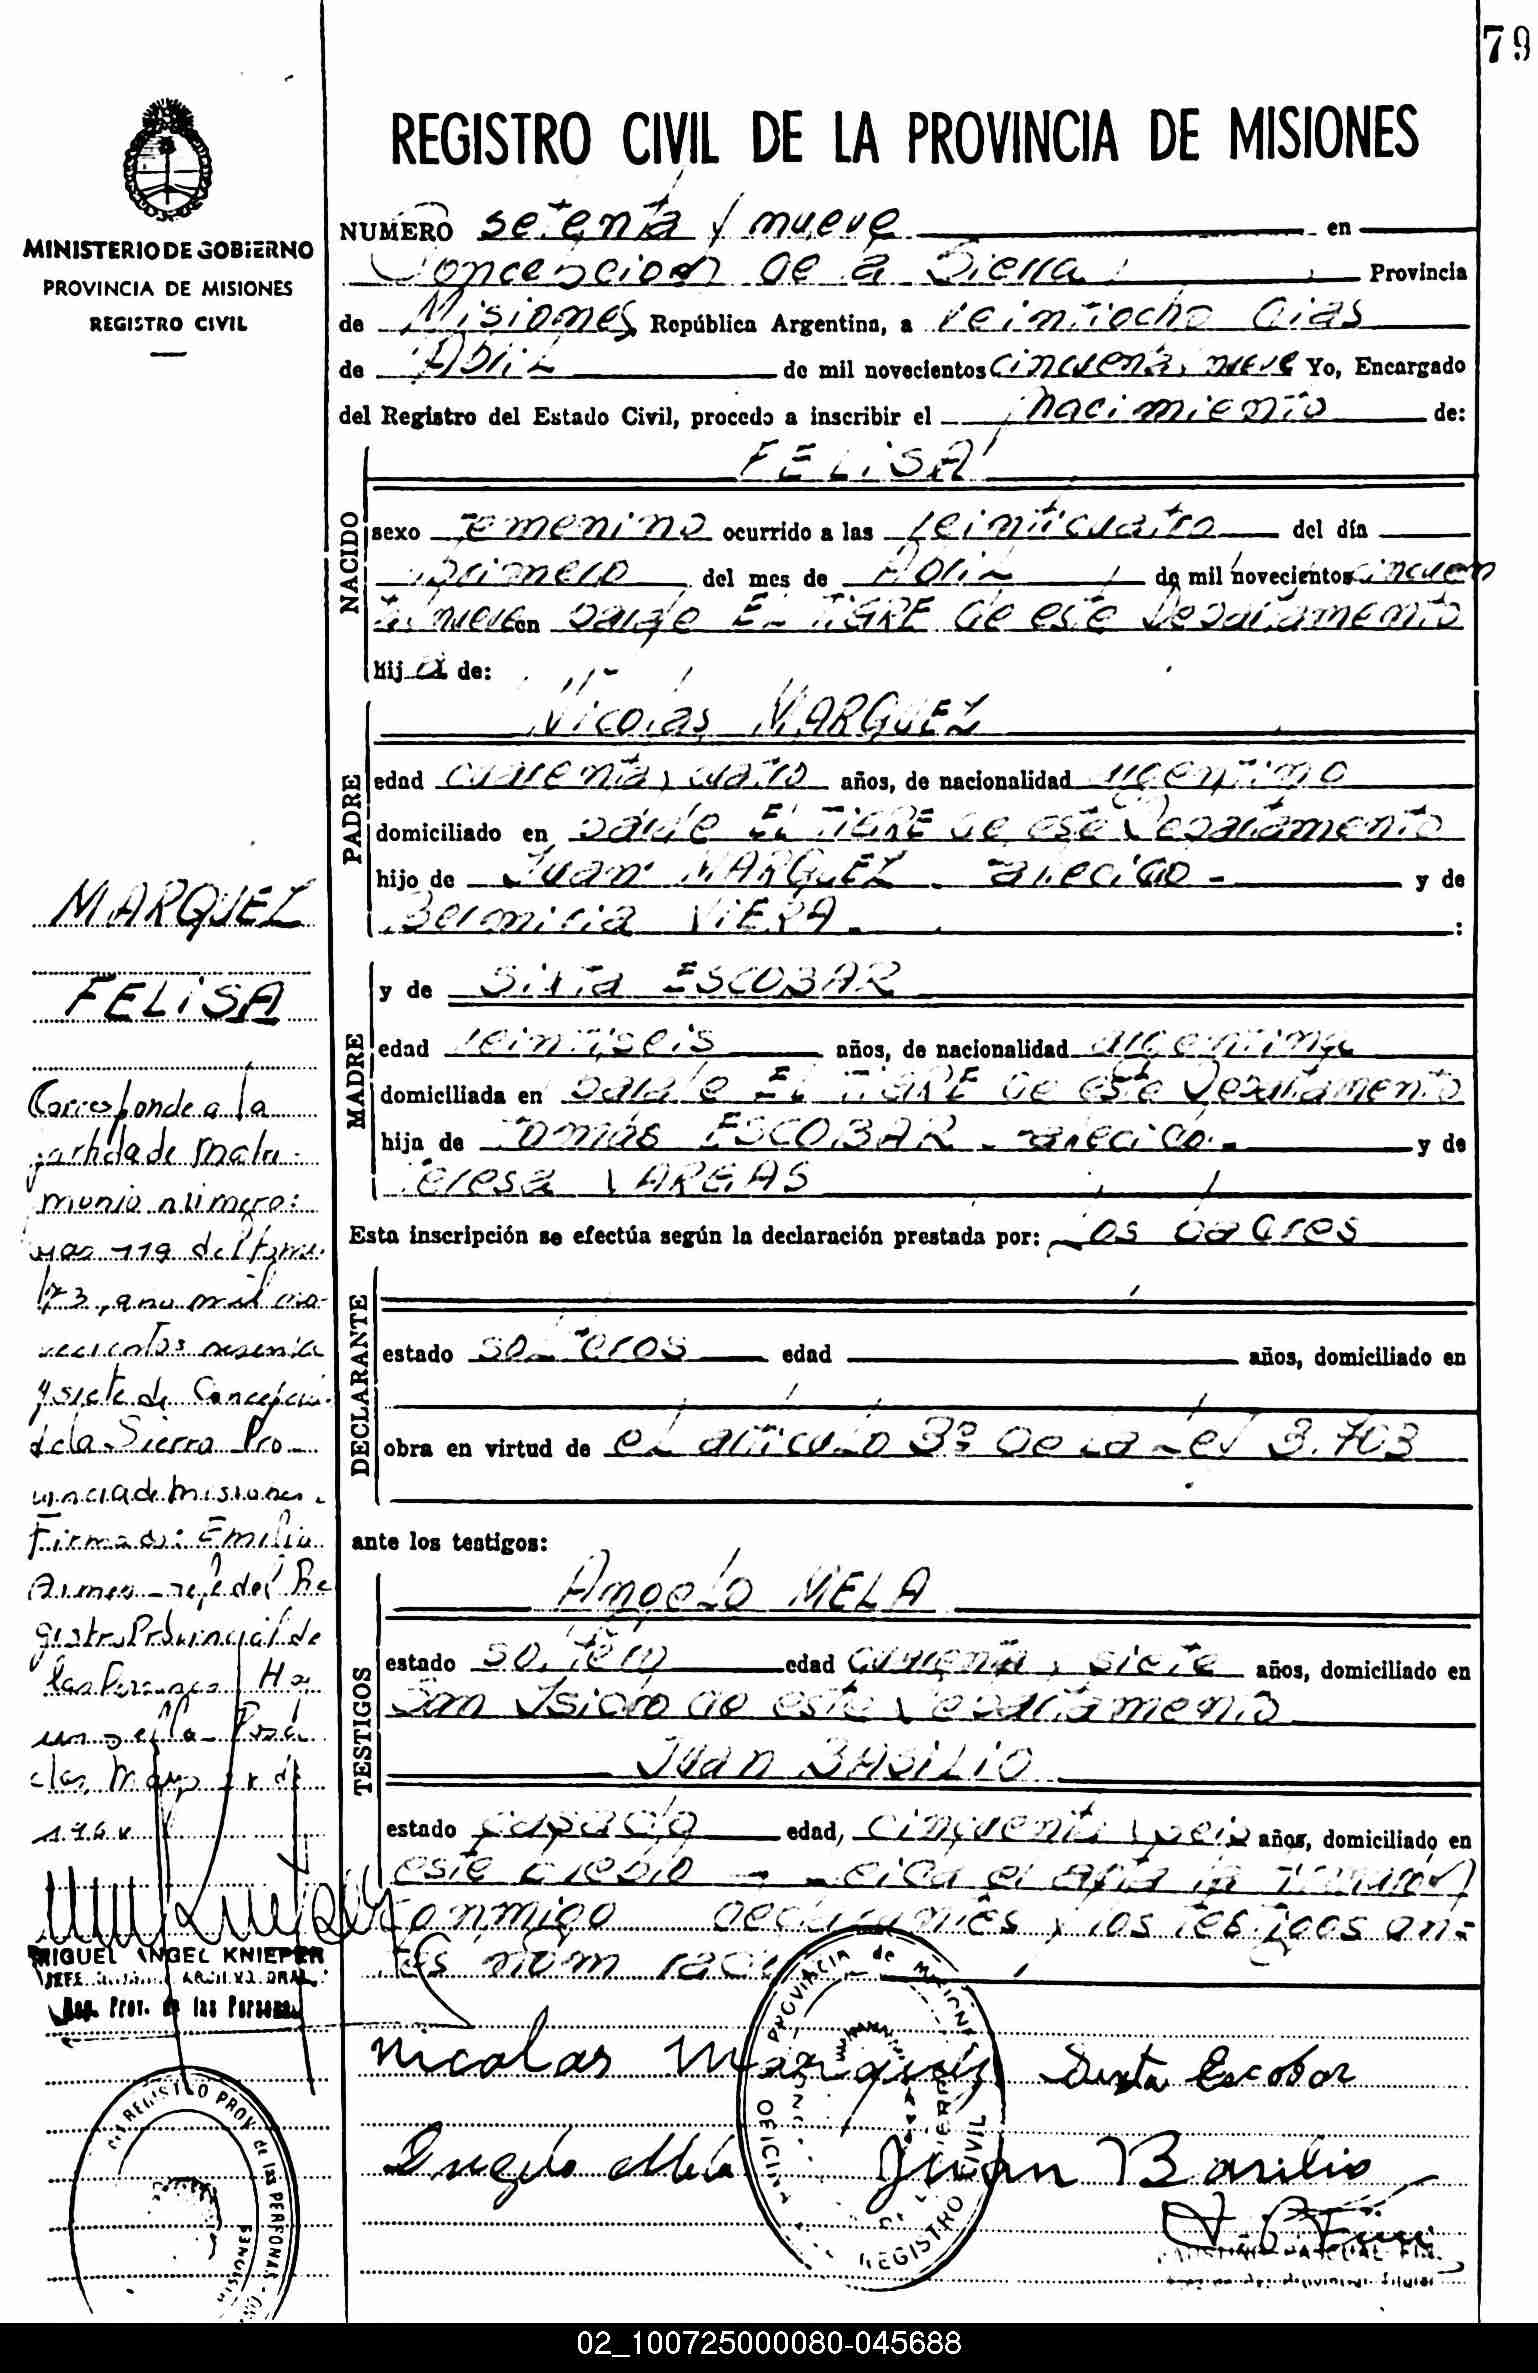 79
REGISTRO CIVIL DE LA PROVINCIA DE MISIONES
MINISTERIO DE GOBIERNO
PROVINCIA DE MISIONES
REGISTRO CIVIL
NUMERO setenta y nueve en
Concepcion de la Sierra Provincia
de Misiones República Argentina, a veintiocho dias
de Abril de mil novecientos cincuenta y nueve Yo, Encargado
del Registro del Estado Civil, procedo a inscribir el nacimiento de:
FELISA
NACIDO
sexo femenino ocurrido a las veinticuatro del día
primero del mes de Abril de mil novecientos cincuen
ta y nueve en paraje EL TIGRE de este Departamento
hija de:
Nicolas MARQUEZ
PADRE
edad cuarenta y cuatro años, de nacionalidad argentino
domiciliado en paraje EL TIGRE de este Departamento
hijo de Juan MARQUEZ - falecido - y de
VIERA :
y de Sixta ESCOBAR
MADRE
edad veintiseis años, de nacionalidad argentina
domiciliada en paraje EL TIGRE de este Departamento
hija de Tomás ESCOBAR - falecido - y de
Teresa VARGAS
Esta inscripción se efectúa según la declaración prestada por: los padres
DECLARANTE
estado solteros edad años, domiciliado en
obra en virtud de el articulo 3º de la Ley 3.703
ante los testigos:
Angelo MELA
TESTIGOS
estado soltero edad cuarenta y siete años, domiciliado en
San Isidro de este Departamento
Juan BASILIO
estado casado edad, cincuenta y seis años, domiciliado en
este pueblo - Leida el acta la firmaron
conmigo declarantes y los testigos an-
tes nombrados
Nicolas Marquez Sixta Escobar
Angelo Mela Juan Basilio
PROVINCIA de MISIONES
REGISTRO CIVIL
MARQUEZ
FELISA
Corresponde a la
partida de matri-
monio número:
119 del tomo
3, año mil no-
vecientos sesenta
y siete de Concepcion
de la Sierra Pro-
vincia de Misiones.
Firmado: Emilio
jefe del Re
gistro Provincial de
las Personas Ha
Posa
das, Mayo de
196
MIGUEL ANGEL KNIEPER
JEFE ARCHIVO GRAL.
Reg. Prov. de las Personas
REGISTRO PROV. de las PERSONAS
MISIONES
02_100725000080-045688